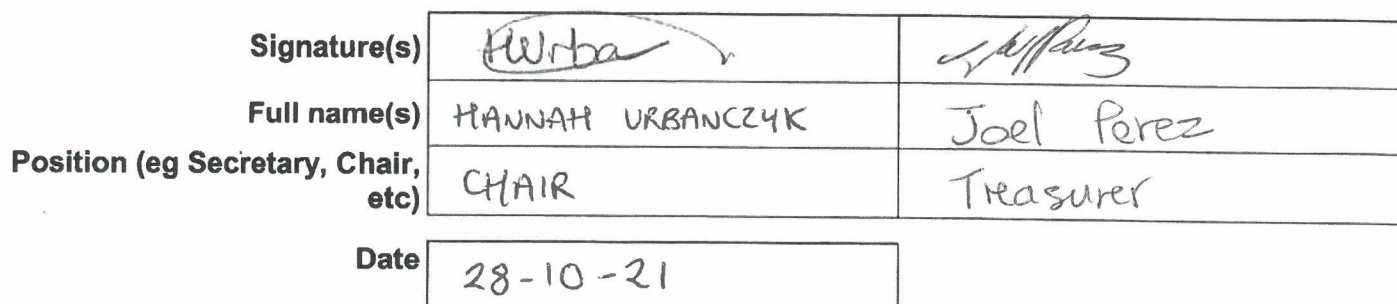 Signature(s) HUrba
Full name(s) HANNAH URBANCZYK Joel Perez
Position (eg Secretary, Chair,
etc) CHAIR Treasurer
Date 28-10-21